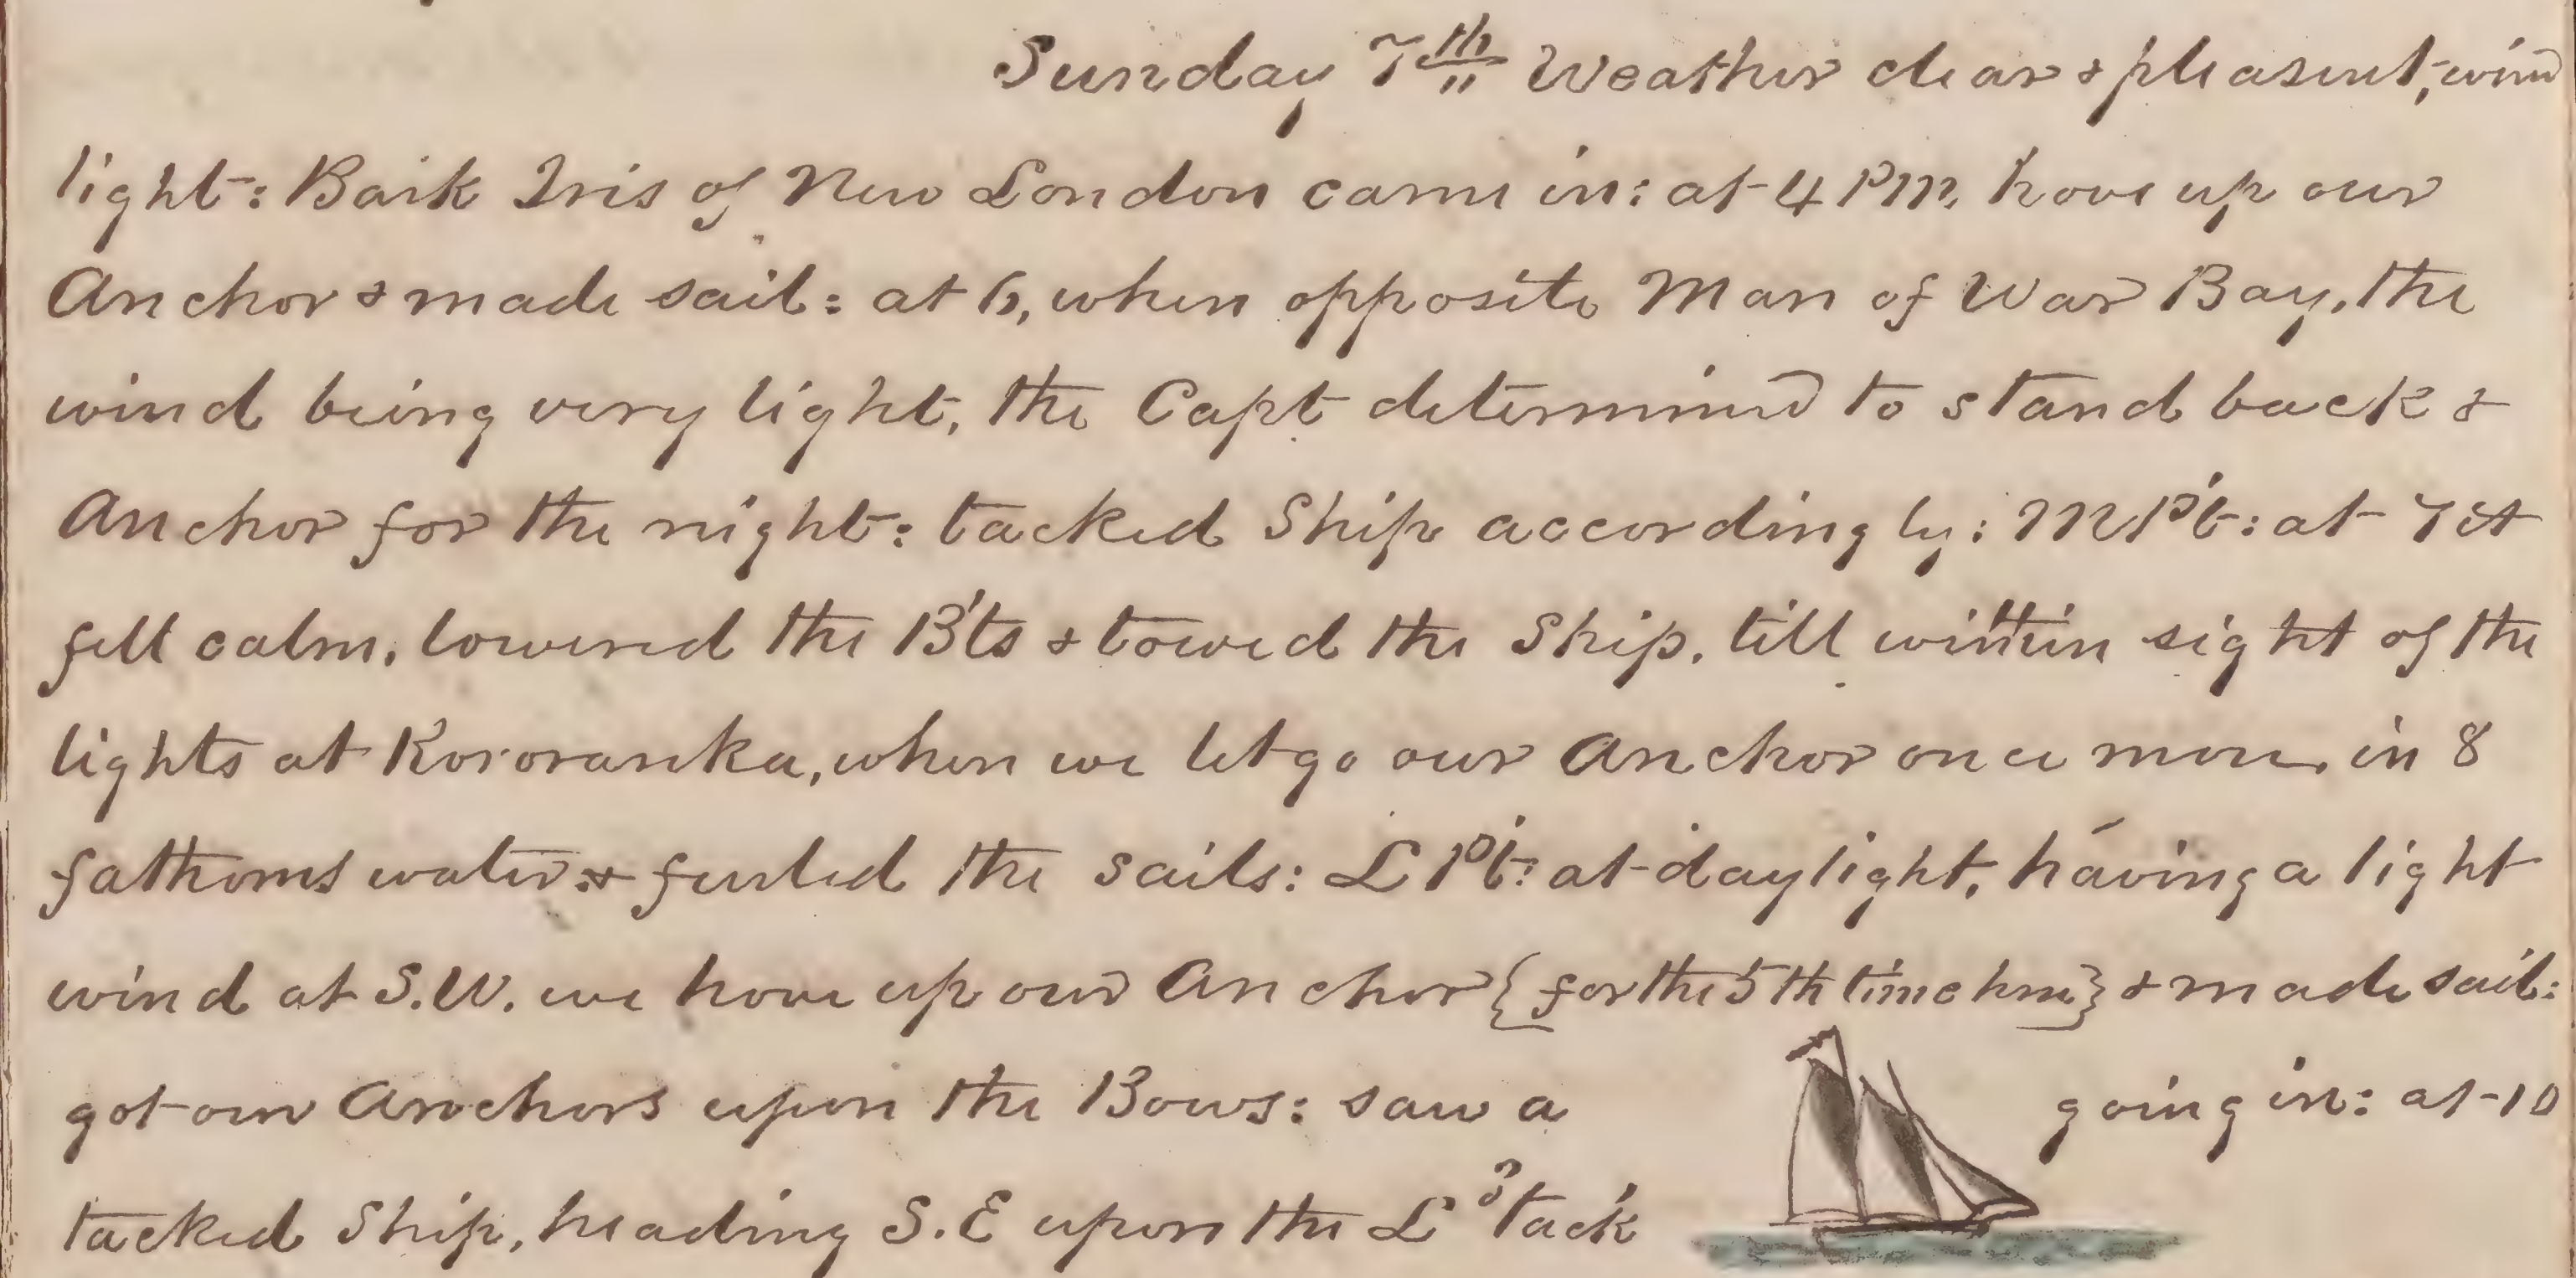 Sunday 7th Weather clear & pleasent, wind
light: Bark Iris of New London came in: at 4 PM, hove up our
Anchor & made sail: at 6, when opposite Man of War Bay, the
wind being very light, the Capt determined to stand back &
Anchor for the night: tacked Ship accordingly: M P't: at 7 it
fell calm, lowered the B'ts & towed the Ship, till within sight of the
lights at Kororarika, when we let go our Anchor once more, in 8
fathoms water: & furled the sails: L P't: at daylight, having a light
wind at S.W. we hove up our Anchor {for the 5th time here} & made sail:
got our Anchors upon the Bows: saw a going in: at 10
tacked Ship, heading S.E upon the L tack